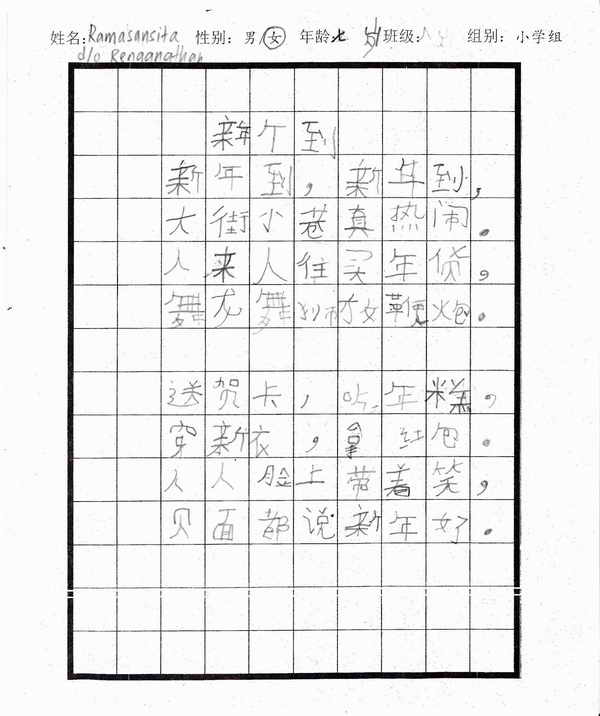 姓名:Ramasansita 性别:男/女 年龄:七岁 班级: 组别:小学组
d/o Renganathan
新年到
新年到,新年到,
大街小巷真热闹。
人来人往买年货,
舞龙舞狮放鞭炮。
送贺卡,吃年糕,
穿新衣,拿红包。
人人脸上带着笑,
见面都说新年好。